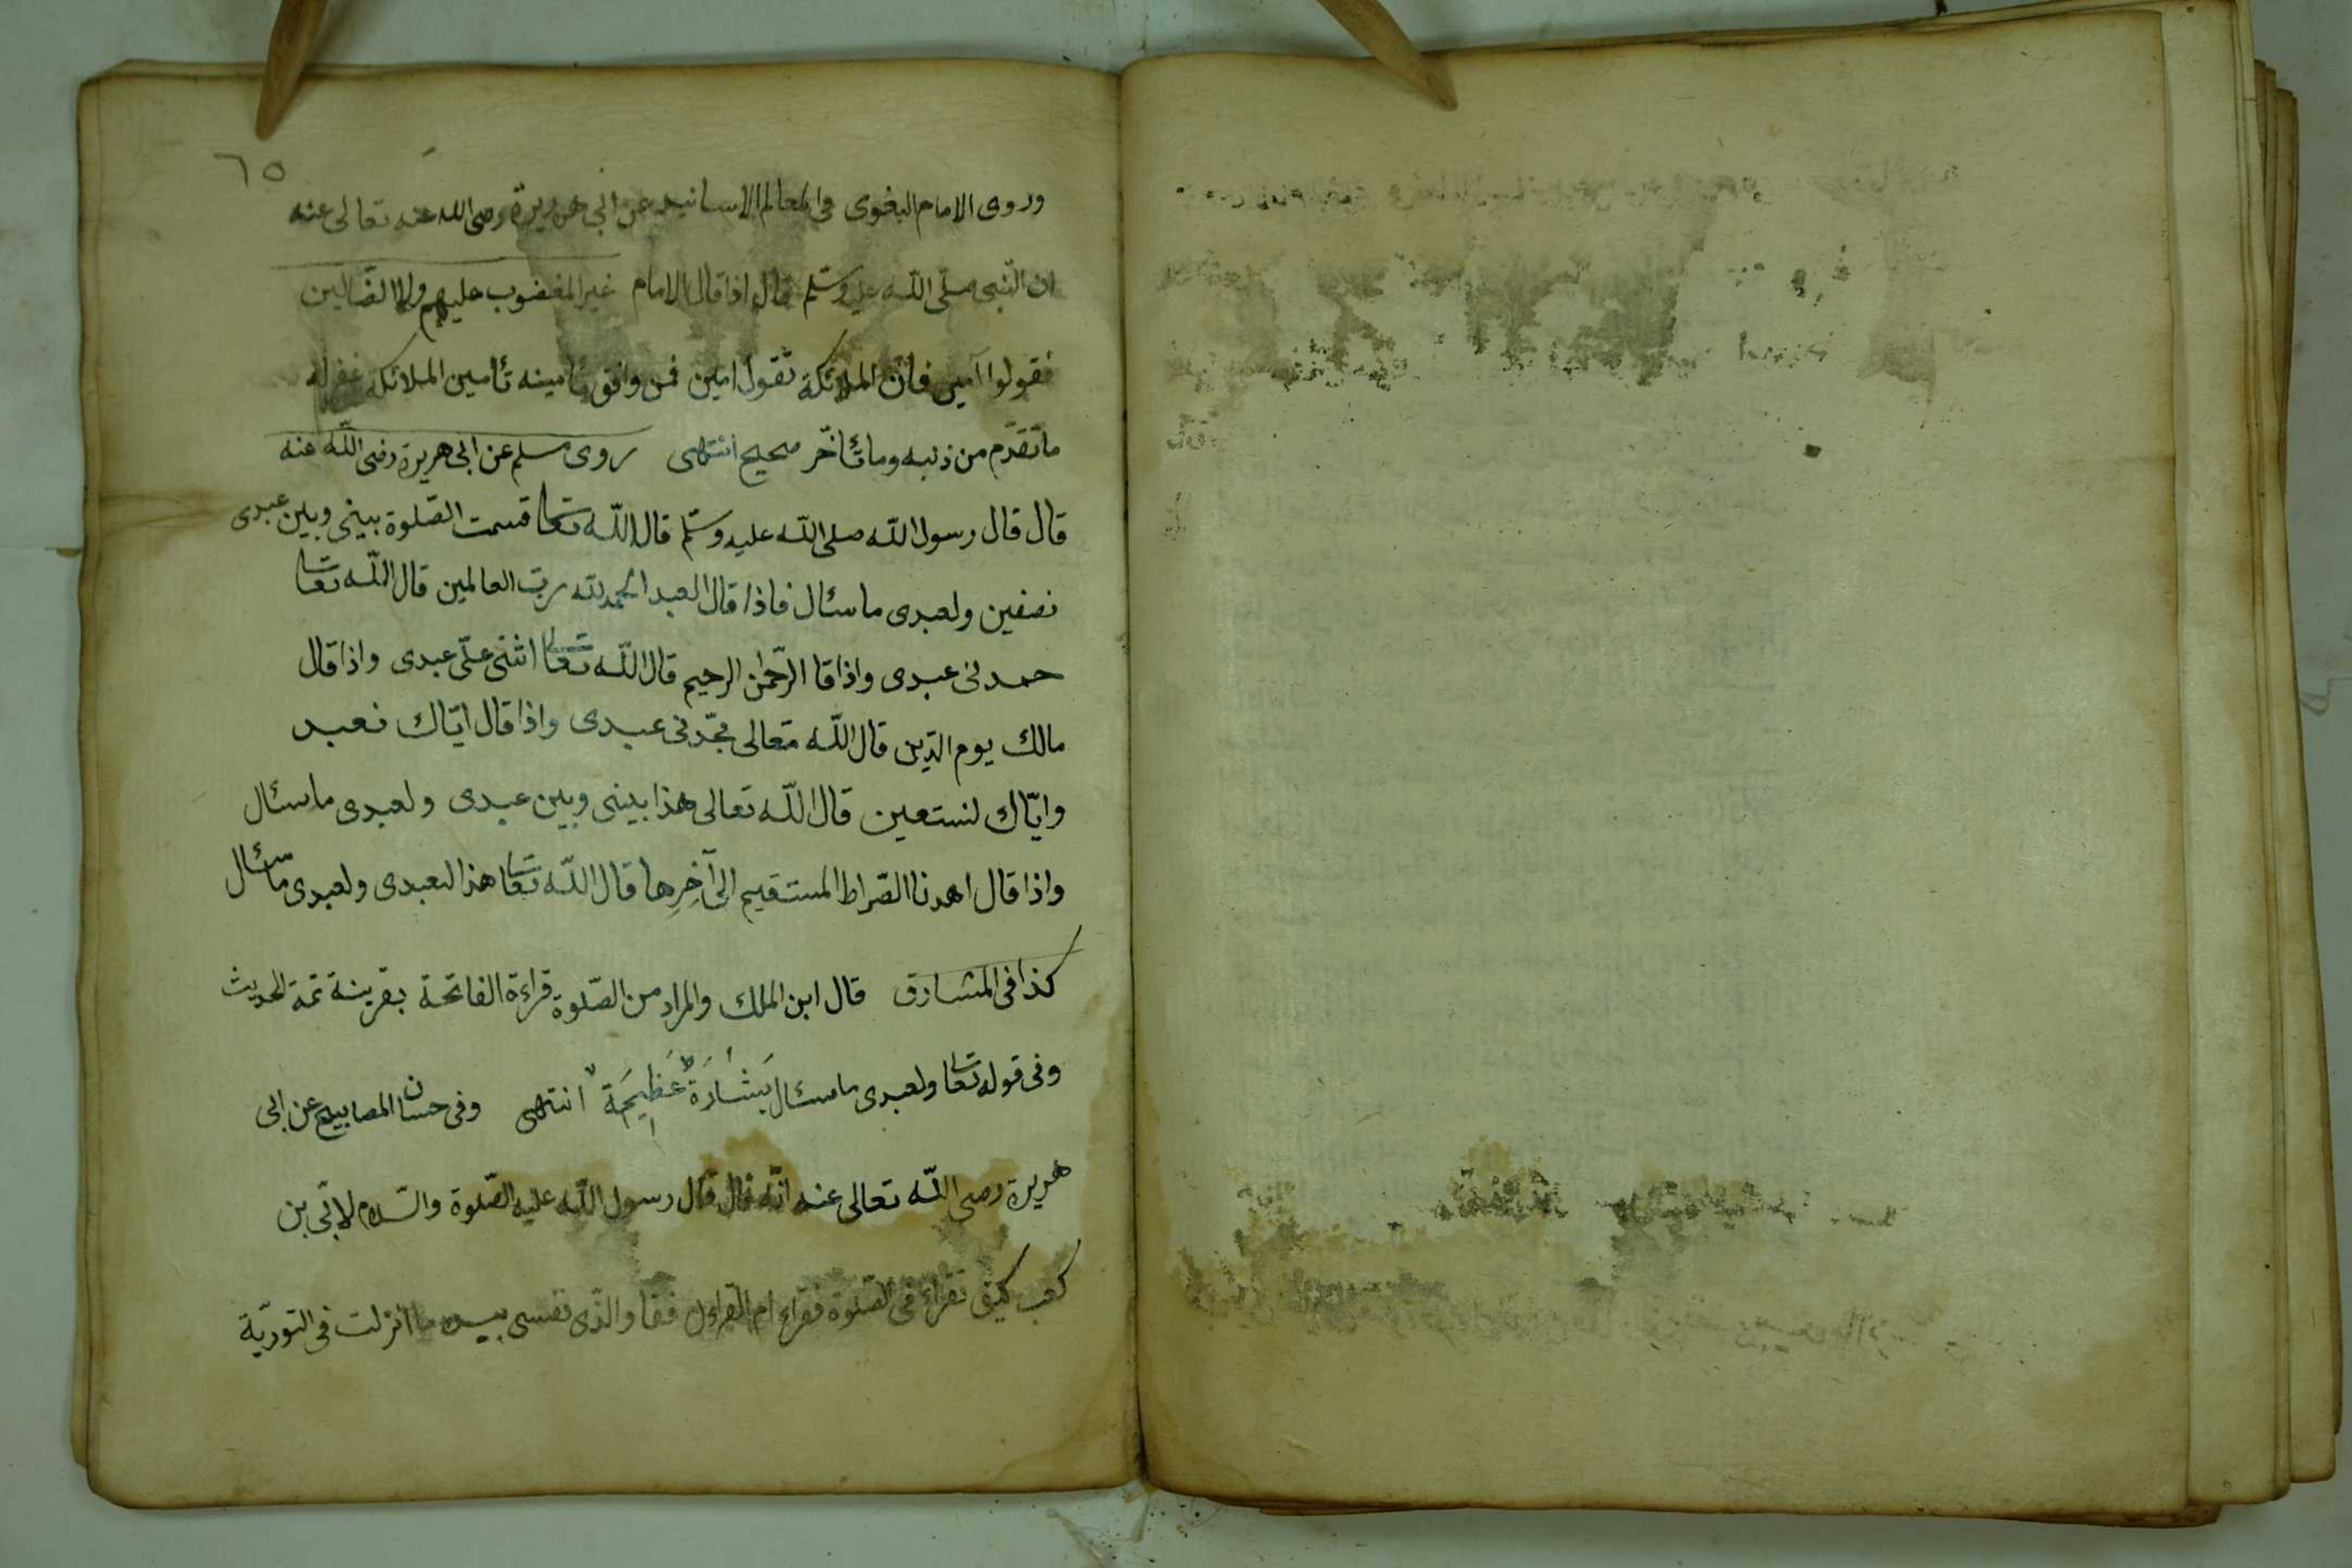 ٦٥
وروى الامام البغوى فى المعالم الاسانيد عن ابى هريرة رضى الله عنه تعالى عنه
ان النّبى صلّى اللّه عليه وسلّم قال اذا قال الامام غير المغضوب عليهم ولا الضّالين
فقولوا آمين فانّ الملائكة تقول امين فمن وافق تأمينه تأمين الملائكة غفر له
ما تقدّم من ذنبه وما تأخّر صحيح انتهى روى مسلم عن ابى هريرة رضى اللّه عنه
قال قال رسول اللّه صلى اللّه عليه وسلّم قال اللّه تعا قسمت الصّلوة بينى وبين عبدى
نصفين ولعبدى ما سئال فاذا قال العبد الحمد للّه ربّ العالمين قال اللّه تعا
حمدنى عبدى واذا قا الرّحمن الرحيم قال اللّه تعا اثنى علّى عبدى واذا قال
مالك يوم الدّين قال اللّه تعالى مجّدنى عبدى واذا قال ايّاك نعبد
وايّاك لنستعين قال اللّه تعالى هذا بينى وبين عبدى ولعبدى ما سئال
واذا قال اهدنا الصّراط المستقيم الى آخِرِها قال اللّه تعا هذا لعبدى ولعبدى ما سئال
كذا فى المشارق قال ابن الملك والمراد من الصّلوة قراءة الفاتحة بقرينة تمة الحديث
وفى قوله تعا ولعبدى ما سئال بَشَارَة عَظِيمَة انتهى وفى حسان المصابيح عن ابى
هريرة رضى اللّه تعالى عنه انّه قال قال رسول اللّه عليه الصّلوة والسّلام لابّى بن
كعب كيف تقراء فى الصلوة فقراء ام القراءن فقا والّذى نفسى بيده ما انزلت فى التّوريّة